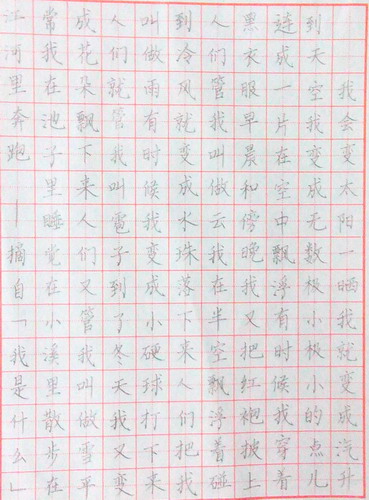 我会变太阳一晒我就变成汽升
到天空我变成无数极小极小的点儿
连成一片在空中飘浮有时候我穿着
黑衣服早晨和傍晚我又把红袍披上
人们管我叫做云我在半空飘浮着碰
到冷风就变成水珠落下来人们把我
叫做雨有时候我变成小硬球打下来
人们就管我叫雹子到了冬天我又变
成花朵飘下来人们又管我叫做雪平
常我在池子里睡觉在小溪里散步在
江河里奔跑—摘自「我是什么」